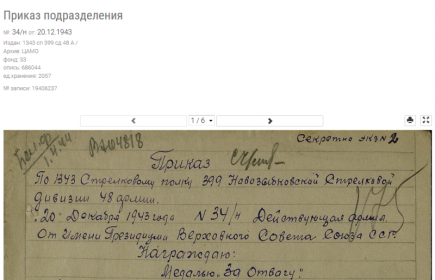 Приказ подразделения
№: 34/н от: 20.12.1943
Издан: 1343 сп 399 сд 48 А /
Архив: ЦАМО
фонд: 33
опись: 686044
ед.хранения: 2087
№ записи: 19408237
1 / 6
Секретно экз 2
В204818
Приказ
По 1343 Стрелковому полку 399 Новозыбковской Стрелковой
дивизии 48 армии.
"20" Декабря 1943 года N 34/н Действующая армия.
От Имени Президиума Верховного Совета Союза ССР.
Награждаю:
Медалью "За Отвагу"